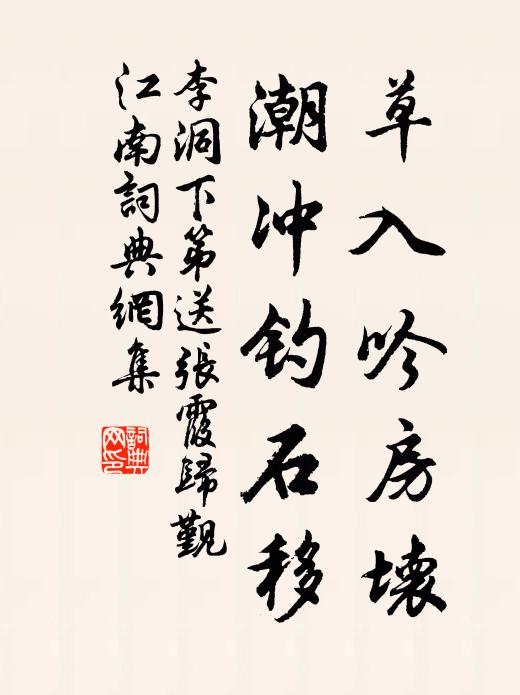 草入吟房壊
潮冲钓石移
李洞下第送張霞歸觐
江南詞典網集
詞典网印